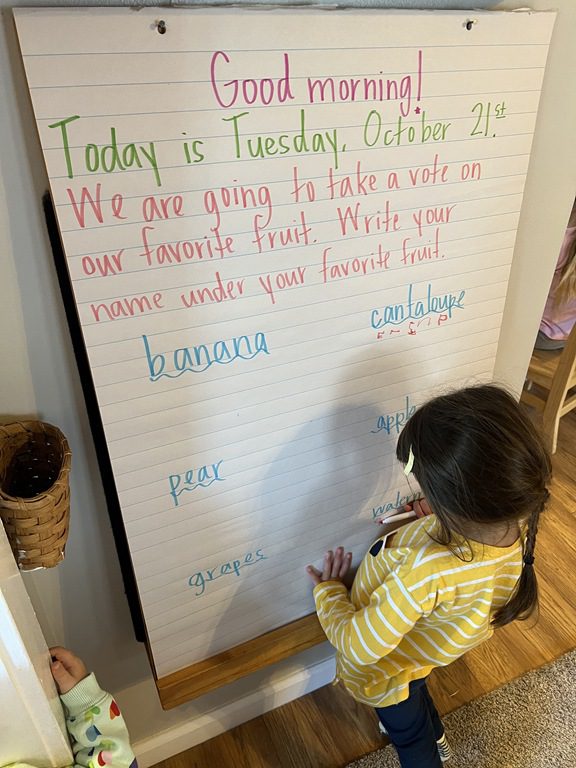 Good morning!
Today is Tuesday, October 21.st
We are going to take a vote on
our favorite fruit. Write your
name under your favorite fruit.
banana
cantaloupe
pear
grapes